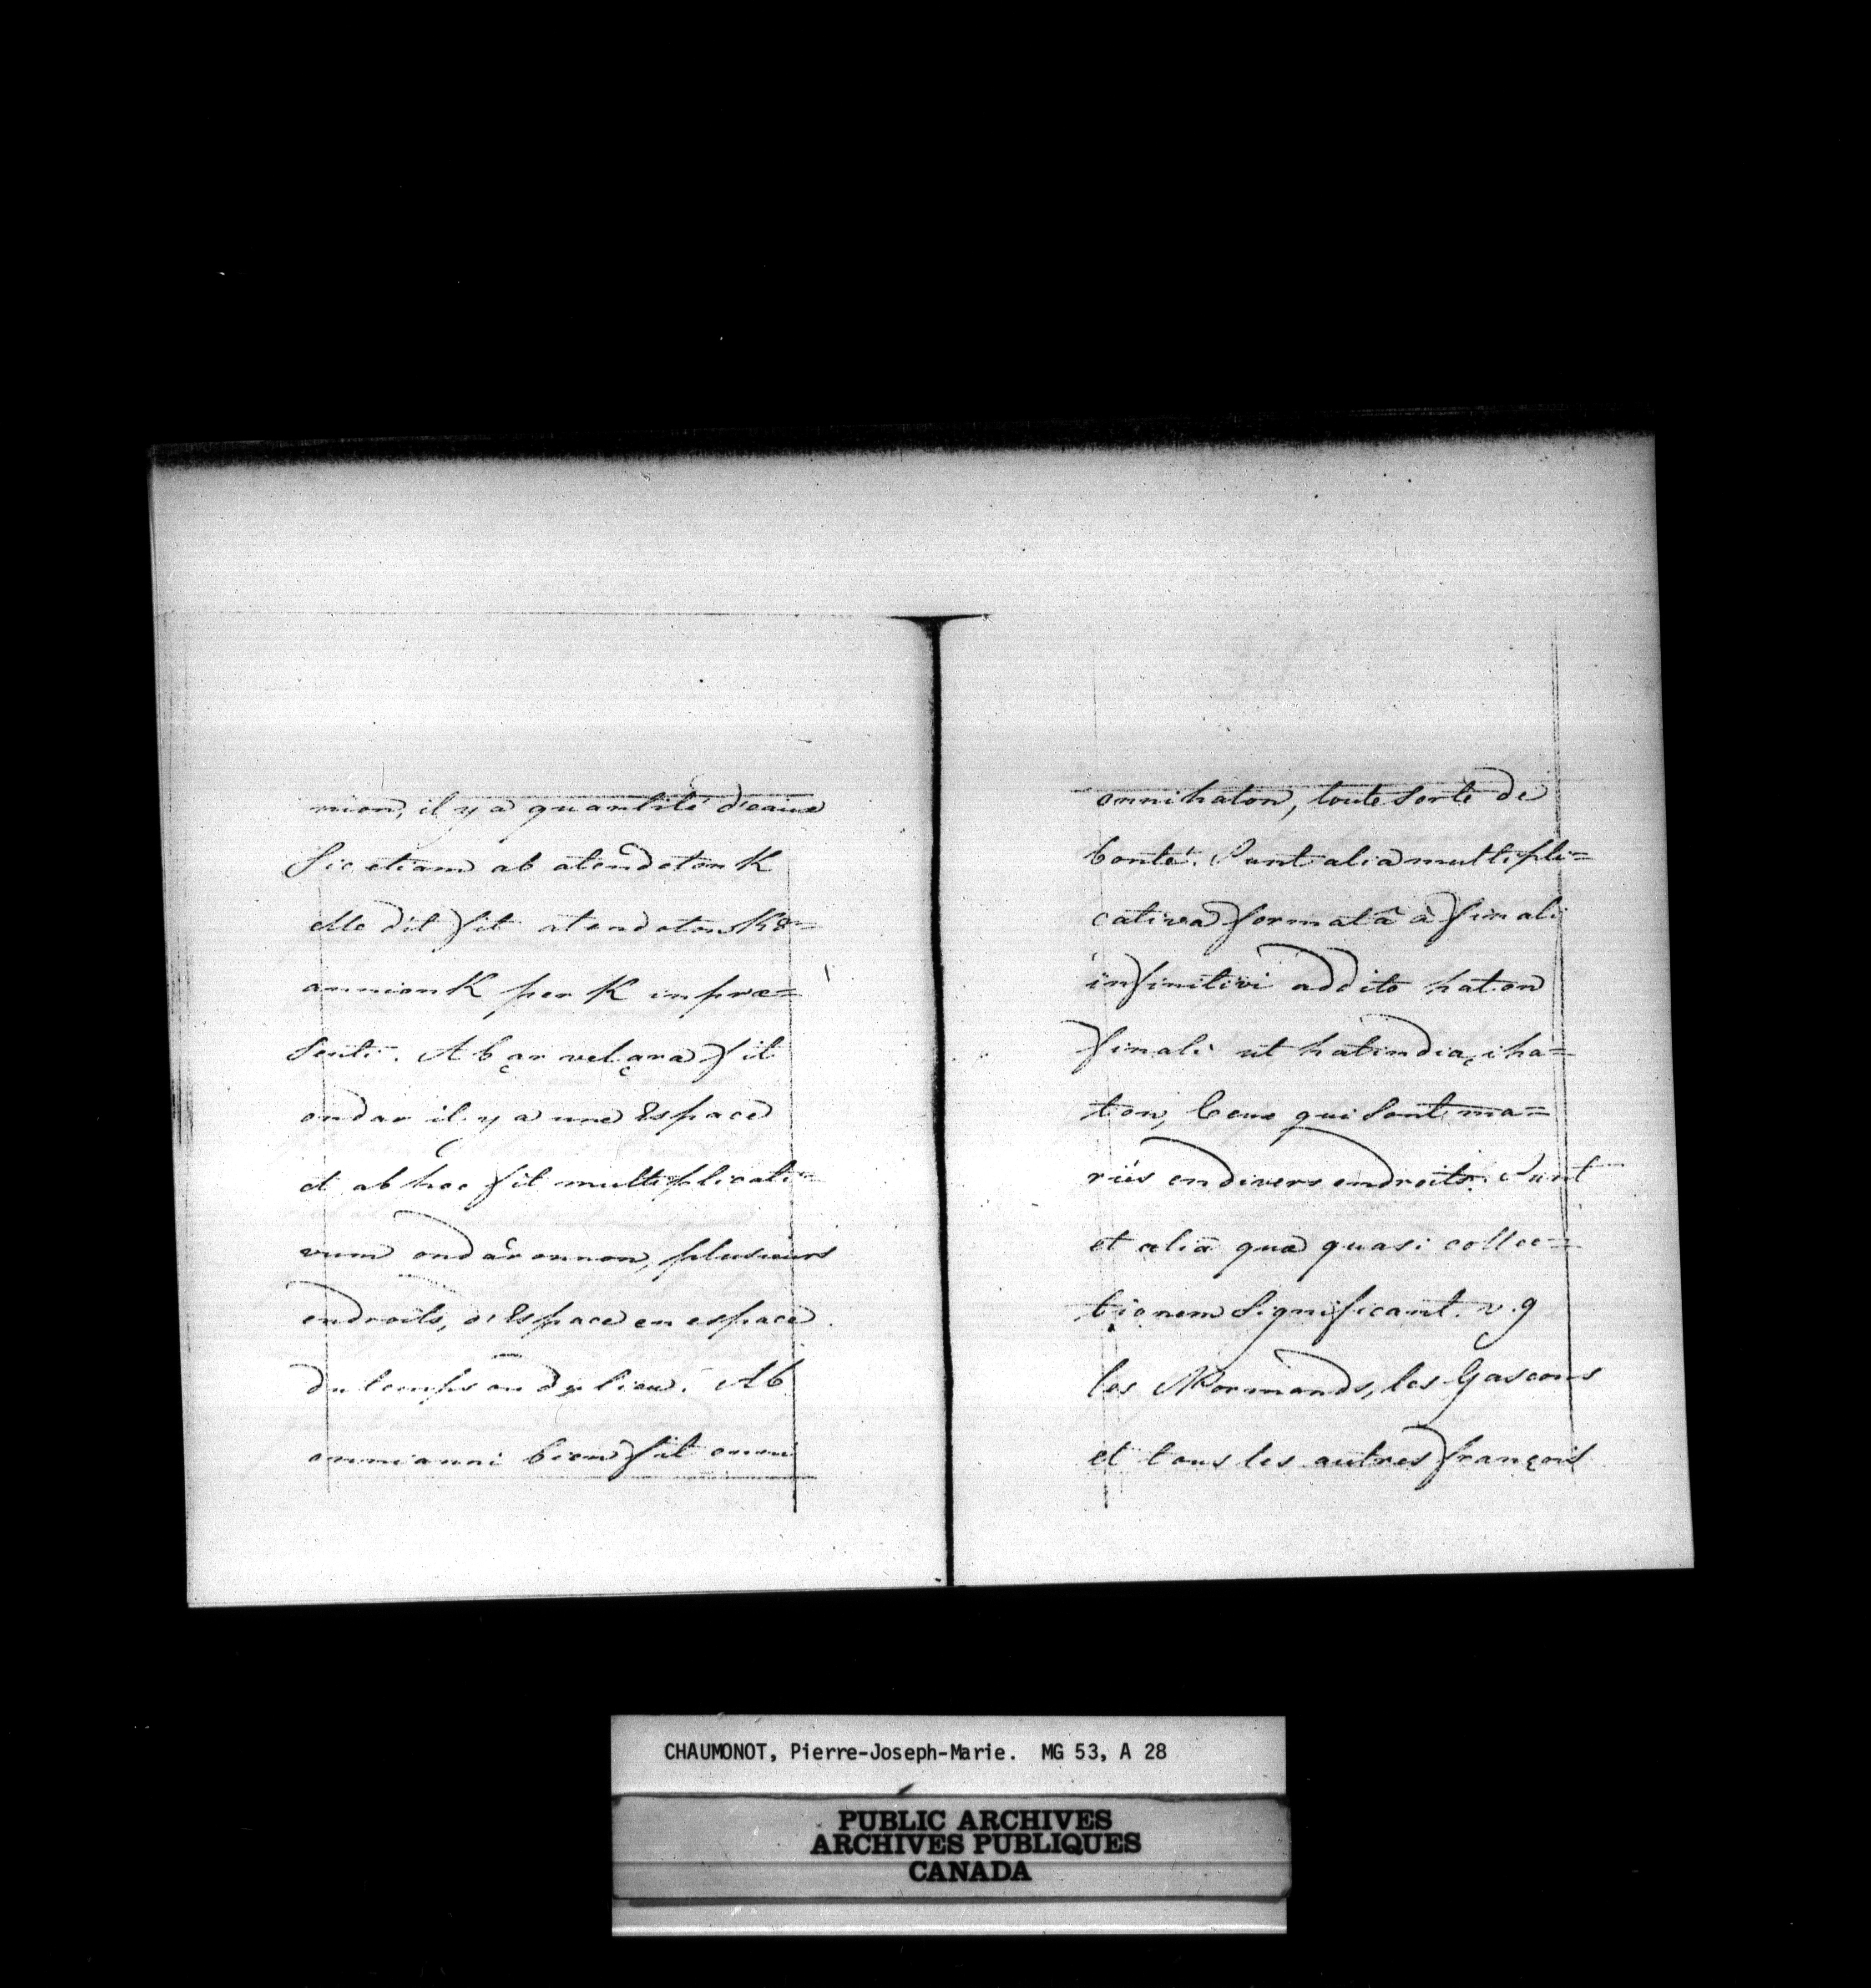 nion, il y a quantité d'eaiue
Sic etiam ab atendotonK
elle dit fit atendotonK8=
annionK per K in præ=
senti. Ab ąar vel ąara fit
ondar il y a une Espace
et ab hoc fit multiplicati=
vum ondaronnon, plusieurs
endroits, d'Espace en espace.
du temps ou de lieu. Ab
onnianni bien fit onni
onnihaton, toute sorte de
bonté. Sunt alia multipli=
cativa formatâ à finali
infinitivi addito haton
finali ut hatindia,iha=
ton, Ceux qui sont ma=
riés en divers endroits. Sunt
et alia quæ quasi collec=
tionem significant. v.g
les Normands, les Gascons
et tous les autres françois
CHAUMONOT, Pierre-Joseph-Marie. MG 53, A 28
PUBLIC ARCHIVES
ARCHIVES PUBLIQUES
CANADA